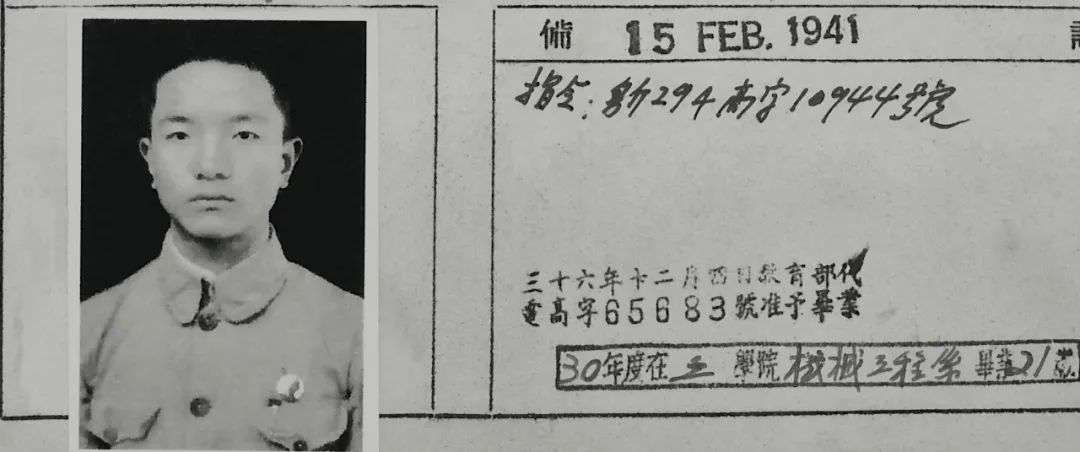 備
15 FEB. 1941
指令：勛294高字10944號
三十六年十二月四日教育部代
電高字65683號准予畢業
30年度在工學院機械工程系畢業21歲